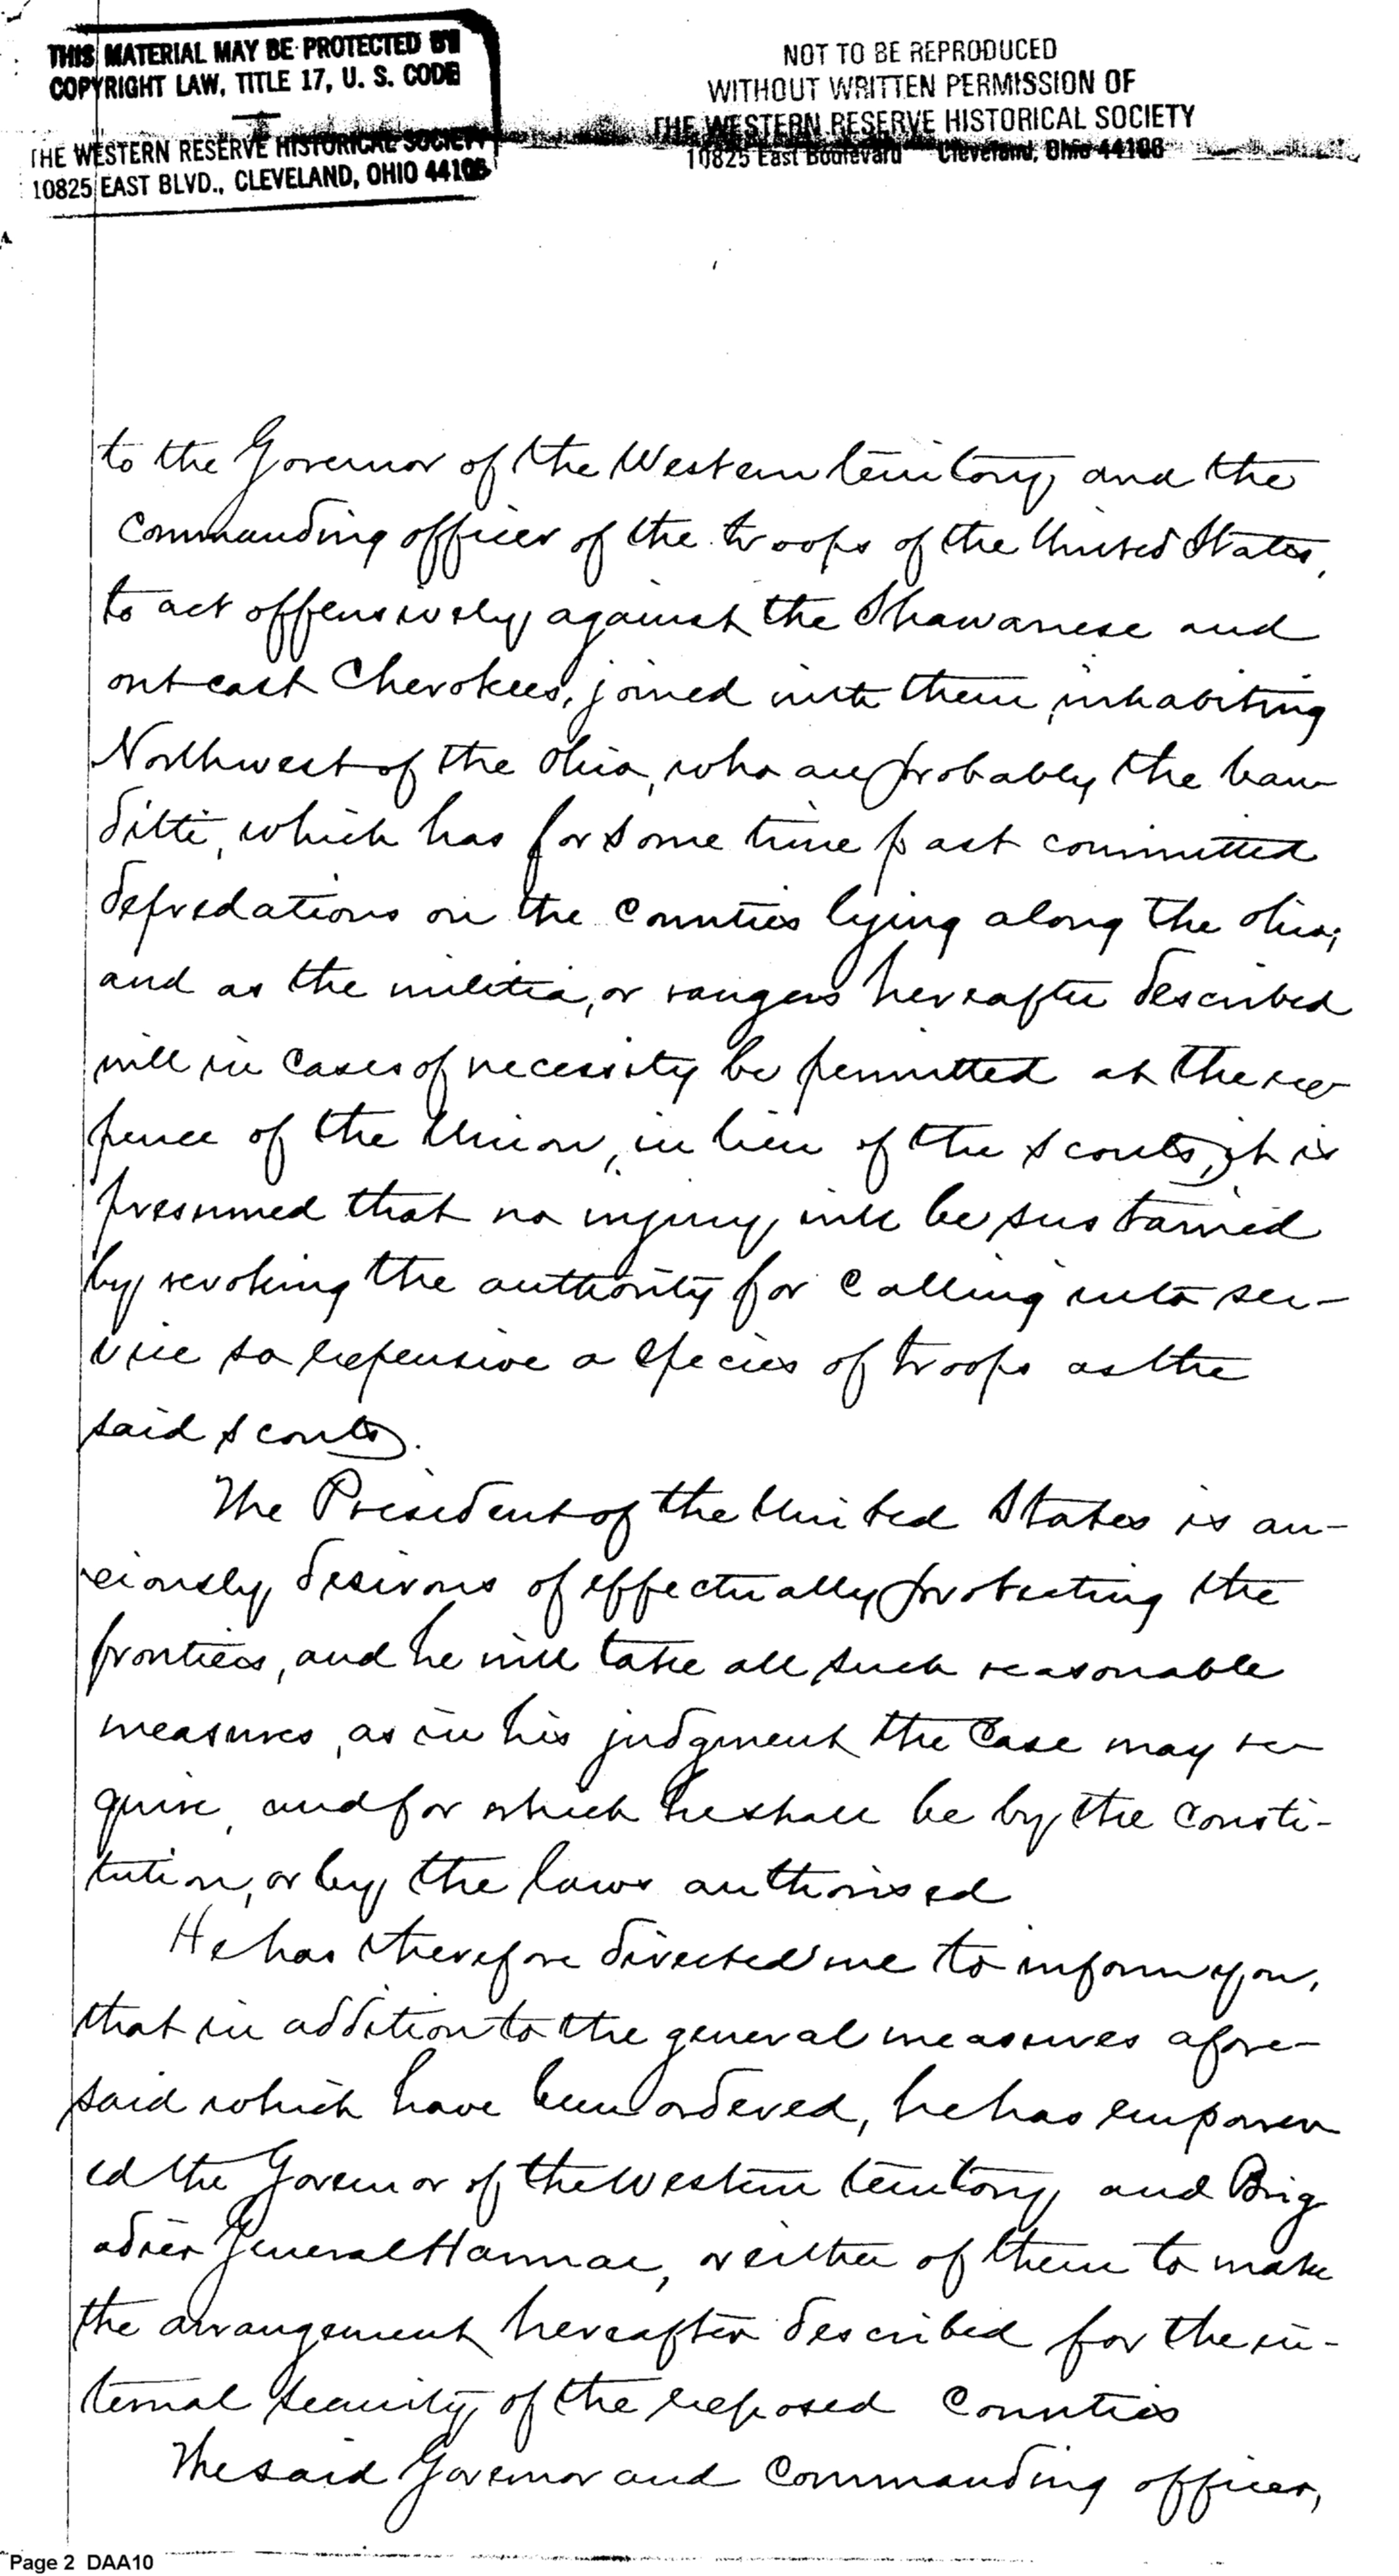 THIS MATERIAL MAY BE PROTECTED BY
COPYRIGHT LAW, TITLE 17, U. S. CODE
THE WESTERN RESERVE HISTORICAL SOCIETY
10825 EAST BLVD., CLEVELAND, OHIO 44106
NOT TO BE REPRODUCED
WITHOUT WRITTEN PERMISSION OF
THE WESTERN RESERVE HISTORICAL SOCIETY
10825 East Boulevard Cleveland, Ohio 44106
to the Governor of the Western territory and the
Commanding officer of the troops of the United States,
to act offensively against the Shawanese and
out cast Cherokees, joined with them, inhabiting
Northwest of the Ohio, who are probably the ban
ditti, which has for some time past committed
depredations on the Counties lying along the Ohio;
and as the militia, or rangers hereafter described
will in cases of necessity be permitted at the ex
pence of the Union, in lieu of the scouts, it is
presumed that no injury will be sustained
by revoking the authority for calling into ser-
vice so expensive a species of troops as the
said scouts.
The President of the United States is an-
xiously desirous of effectually protecting the
frontiers, and he will take all such reasonable
measures, as in his judgment the case may re
quire, and for which he shall be by the consti-
tution, or by the laws authorised
He has therefore directed me to inform you,
that in addition to the general measures afore-
said which have been ordered, he has empower
ed the Governor of the Western territory and Brig
adier General Harmar, or either of them to make
the arrangement hereafter described for the in-
ternal security of the exposed Counties
The said Governor and Commanding officer,
Page 2 DAA10